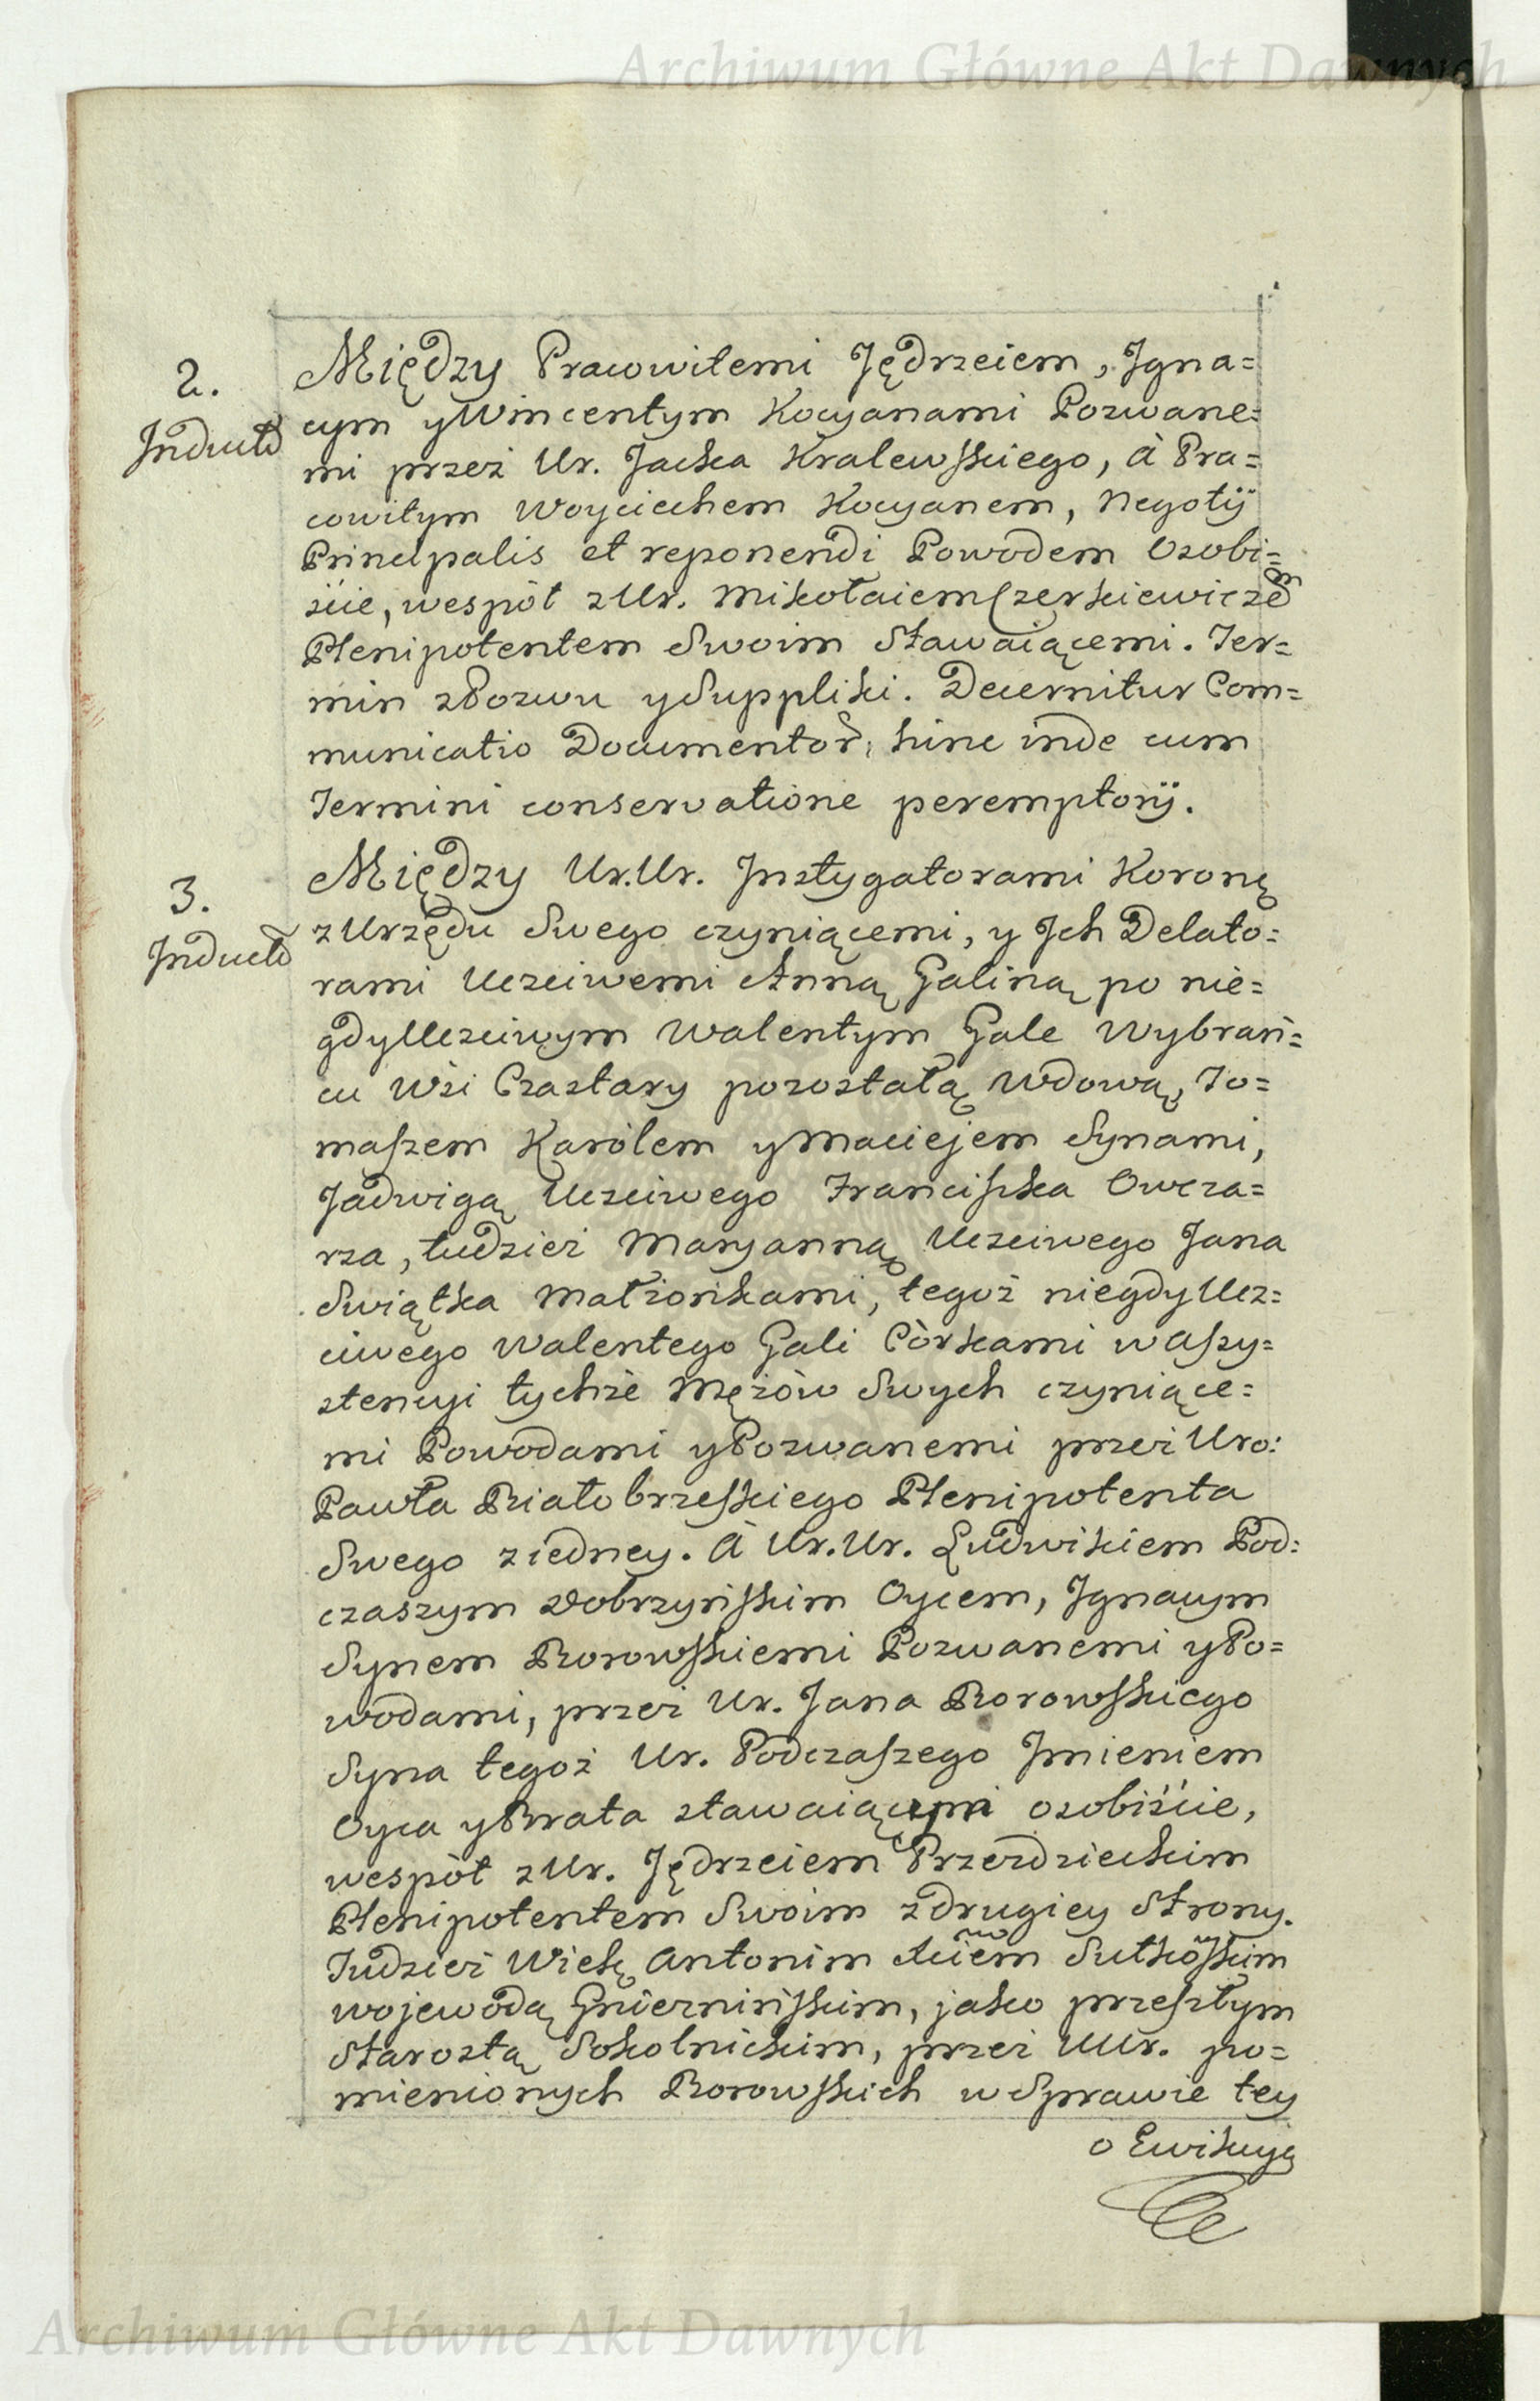 Archiwum Główne Akt Dawnych
2.
Induct
Między Pracowitemi Jędrzeiem, Igna=
cym y Wincentym Kocyanami Pozwane=
mi przez Ur. Jacka Kralewskiego, à Pra=
cowitym Woyciechem Kocyanem, Negotÿ
Principalis et reponendi Powodem Osobi=
ście, wespół z Ur. Mikołaiem Czerkiewiczem
Plenipotentem Swoim Stawaiącemi. Ter=
min z Pozwu y Suppliki. Decernitur Com=
municatio Documentor, hinc inde cum
Termini conservatione peremptorÿ.
3.
Induct
Między Ur. Ur. Instygatorami Koronę
z Urzędu Swego czyniącemi, y Ich Delato=
rami Uczciwemi Anną Galiną po nie=
gdy Uczciwym Walentym Gale Wybrań=
cu Wsi Czastary pozostałą Wdową, To=
maszem Karolem y Maciejem Synami,
Jadwigą Uczciwego Franciszka Owcza=
rza, tudzież Maryanną Uczciwego Jana
Swiątka Małżonkami, tegoż niegdy Ucz=
ciwego Walentego Gali Córkami w Assy=
stencyi tychże Mężów Swych czyniące=
mi Powodami y Pozwanemi przez Uro:
Pawła Białobrzeskiego Plenipotenta
Swego z iedney. à Ur. Ur. Ludwikiem Pod=
czaszym Dobrzyńskim Oycem, Ignacym
Synem Borowskiemi Pozwanemi y Po=
wodami, przez Ur. Jana Borowskiego
Syna tegoż Ur. Podczaszego Imieniem
Oyca y Brata stawaiącymi osobiście,
wespół z Ur. Jędrzeiem Przezdzieckim
Plenipotentem Swoim z drugiey Strony.
Tudzież Wielę Antonim Sutkoskim
Wojewodą Gnieznińskim, jako przeszłym
Starostą Sokolnickim, przez UUr. po=
mienionych Borowskich w Sprawie tey
o Ewikcyą
Archiwum Główne Akt Dawnych